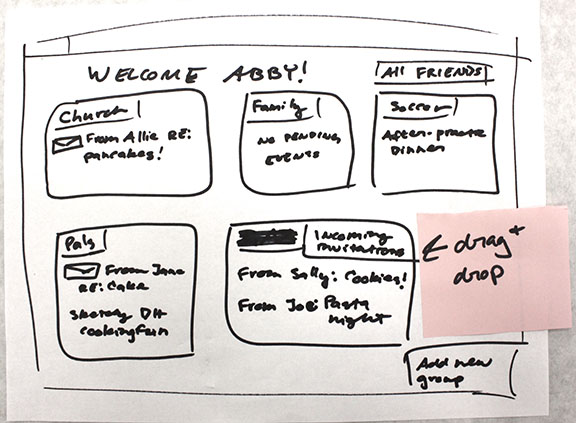 WELCOME ABBY!
All FRIENDS
Church
From Allie RE:
pancakes!
Family
NO PENDING
EVENTS
Soccer
After-practice
Dinner
Pals
From Jane
RE: Cake
DH
Cooking Fun
Incoming
invitations
From Sally: Cookies!
From Joe: Pasta
night
← drag +
drop
Add new
group